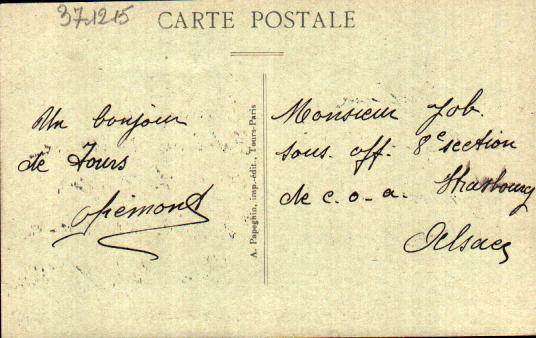 37.12.15
CARTE POSTALE
Un bonjour
de Tours
A. Papeghin, imp.-édit., Tours-Paris
Monsieur Job.
sous. off. 8e section
de c. o - a. Strasbourg
Alsace